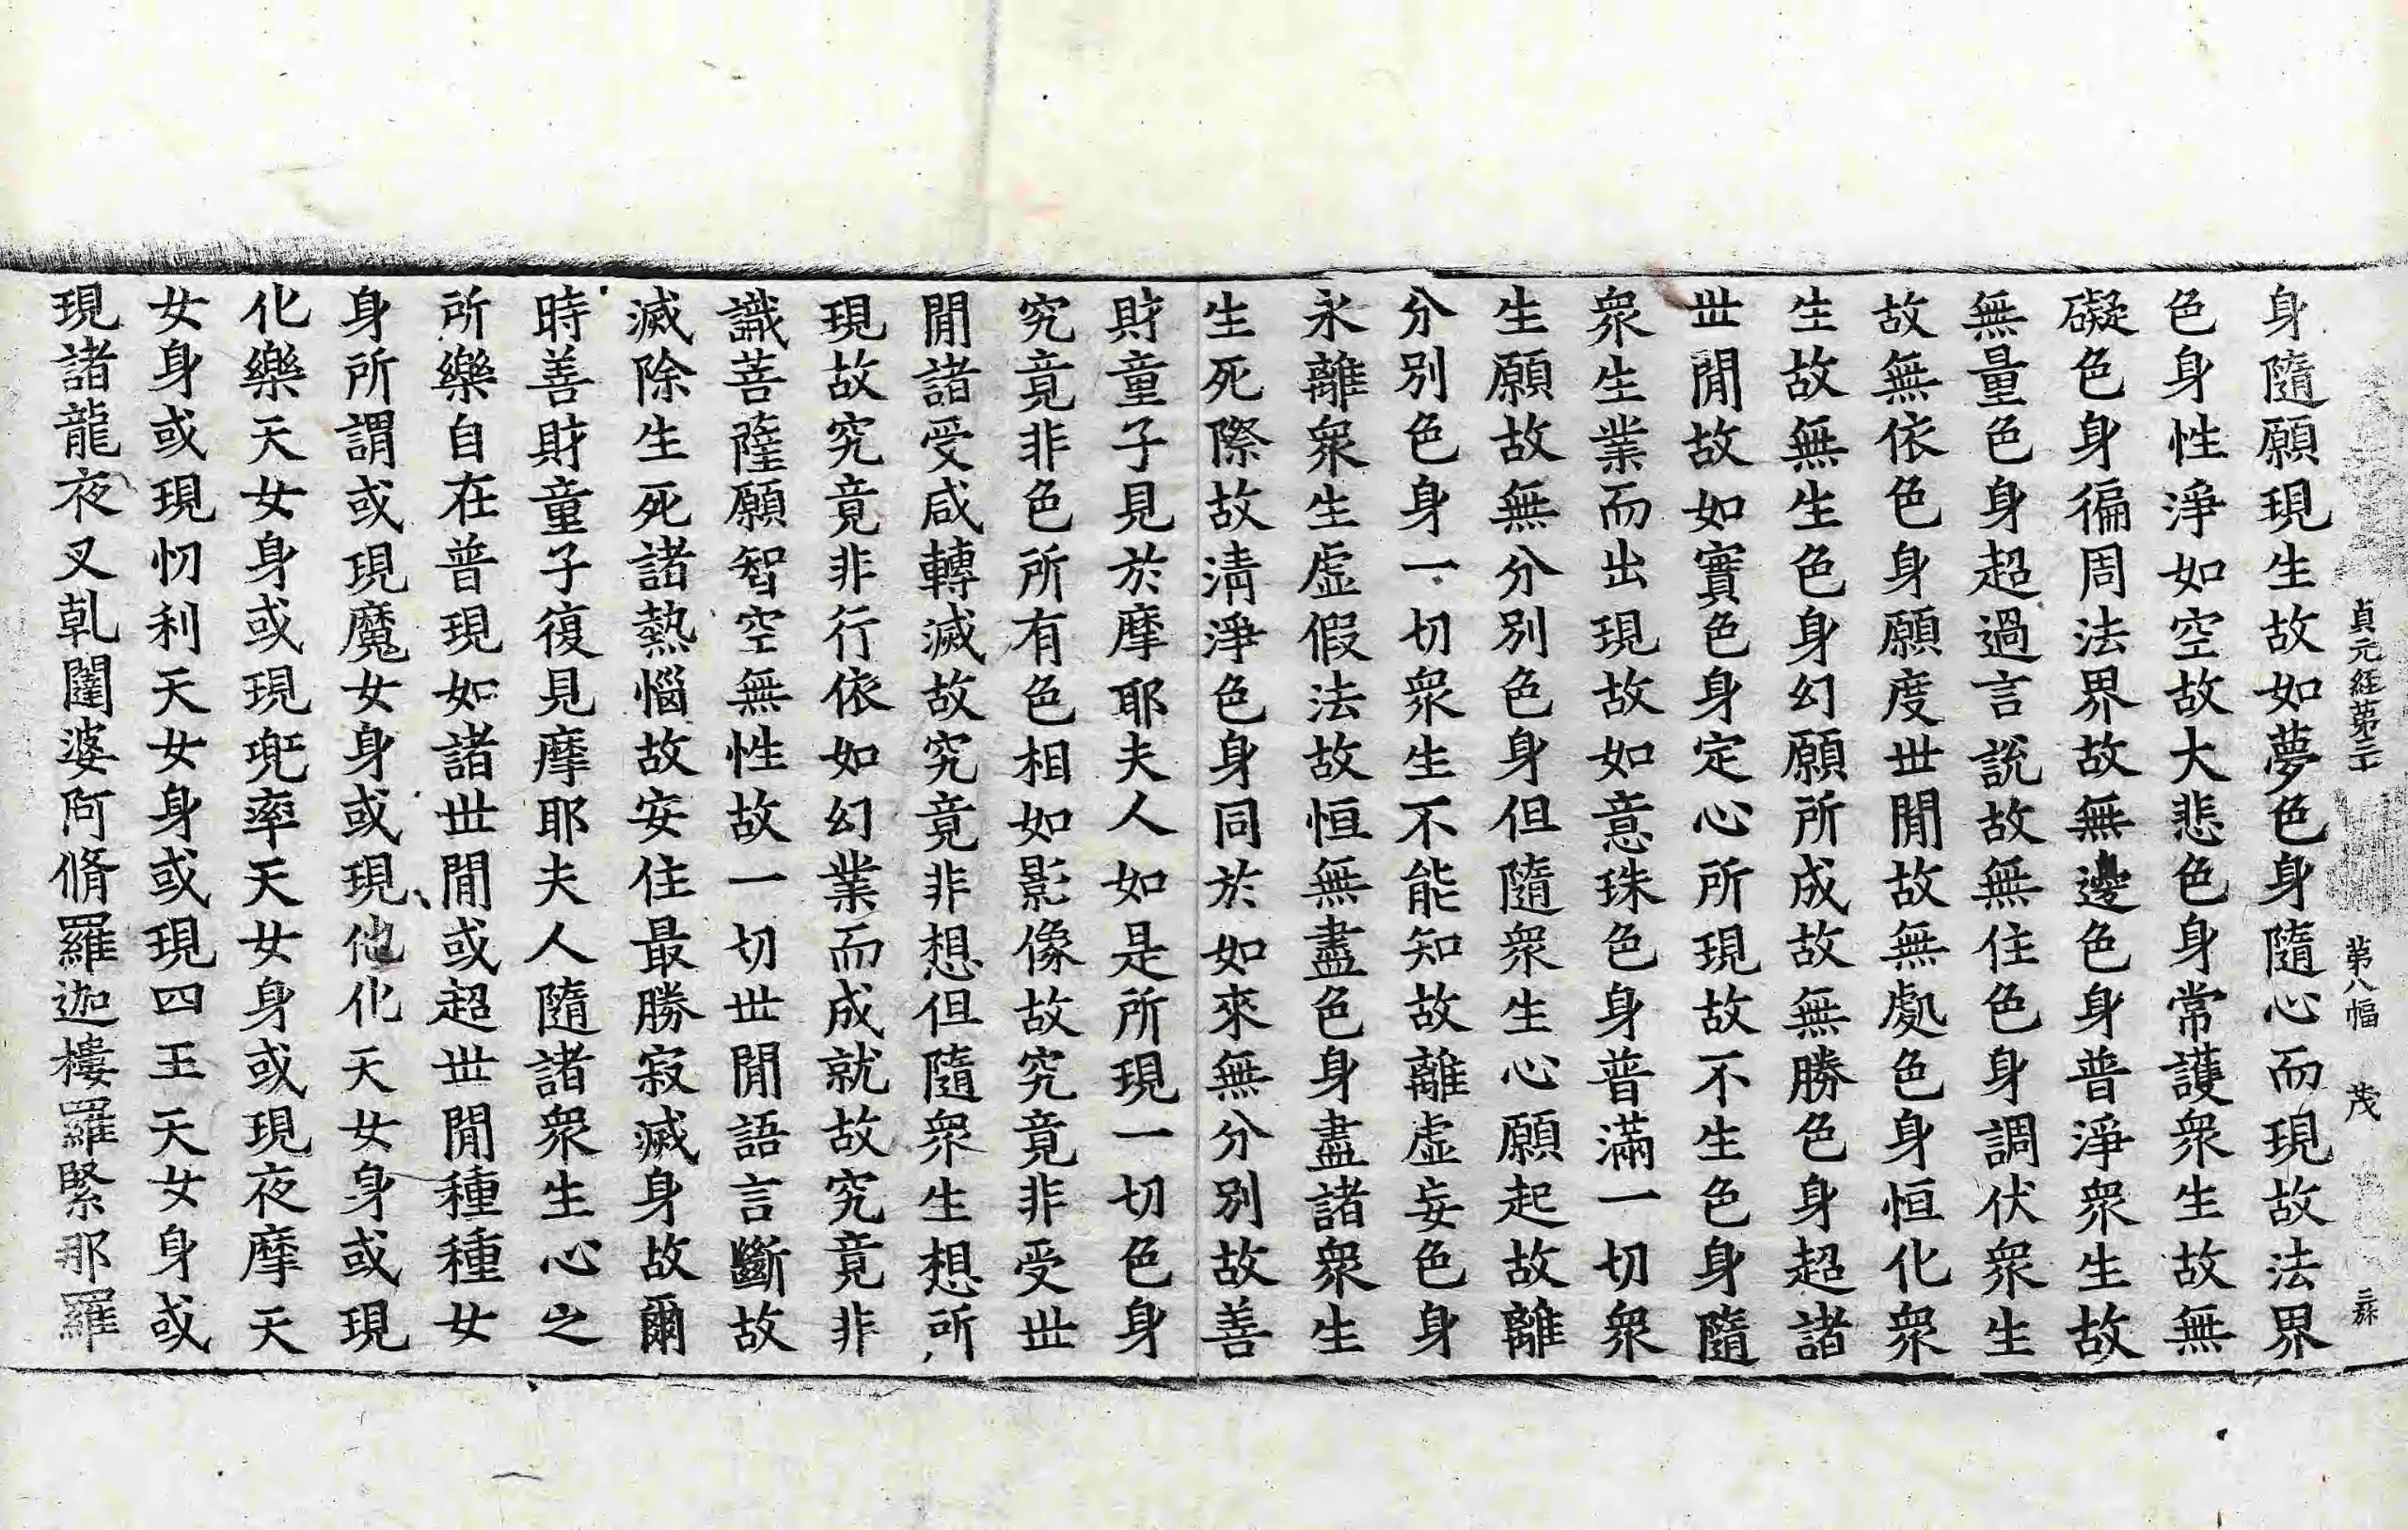 貞元經第三十 第八幅 茂
身隨願現生故如夢色身隨心而現故法界
色身性淨如空故大悲色身常護衆生故無
礙色身徧周法界故無邊色身普淨衆生故
無量色身超過言說故無住色身調伏衆生
故無依色身願度世閒故無處色身恒化衆
生故無生色身幻願所成故無勝色身超諸
世閒故如實色身定心所現故不生色身隨
衆生業而出現故如意珠色身普滿一切衆
生願故無分別色身但隨衆生心願起故離
分別色身一切衆生不能知故離虛妄色身
永離衆生虛假法故恒無盡色身盡諸衆生
生死際故清淨色身同於如來無分別故善
財童子見於摩耶夫人如是所現一切色身
究竟非色所有色相如影像故究竟非受世
閒諸受咸轉滅故究竟非想但隨衆生想所
現故究竟非行依如幻業而成就故究竟非
識菩薩願智空無性故一切世閒語言斷故
滅除生死諸熱惱故安住最勝寂滅身故爾
時善財童子復見摩耶夫人隨諸衆生心之
所樂自在普現如諸世閒或超世閒種種女
身所謂或現魔女身或現他化天女身或現
化樂天女身或現兜率天女身或現夜摩天
女身或現忉利天女身或現四王天女身或
現諸龍夜叉乹闥婆阿脩羅迦樓羅緊那羅